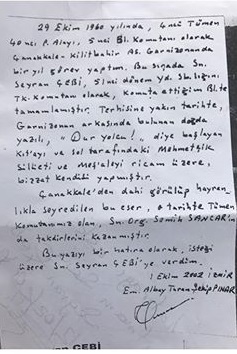 29 Ekim 1960 yılında, 4üncü Tümen
40ıncı P. Alayı, 5inci Bl. Komutanı olarak
Çanakkale-Kilitbahir As. Garnizonunda
bir yıl görev yaptım. Bu sırada Sn.
Seyran ÇEBİ, 51nci dönem Yd. Sb.lığını
Tk. Komutanı olarak, komuta ettiğim Bl.te
tamamlamıştır. Terhisine yakın tarihte,
Garnizonun arkasında bulunan dağda
yazılı, "Dur yolcu!" diye başlayan
Kıt'ayı ve sol tarafındaki Mehmetçik
Silüeti ve Meş'aleyi ricam üzere,
bizzat kendisi yapmıştır.
Çanakkale'den dahi görülüp hayran-
lıkla seyredilen bu eser, o tarihte Tümen
Komutanımız olan, Sn. Org. Semih SANCAR'ın
da takdirlerini kazanmıştır.
Bu yazıyı bir hatıra olarak, isteği
üzere Sn. Seyran ÇEBİ'ye verdim.
1 Ekim 2002 İzmir
Em. Albay Turan Şekip PINAR
ÇEBİ